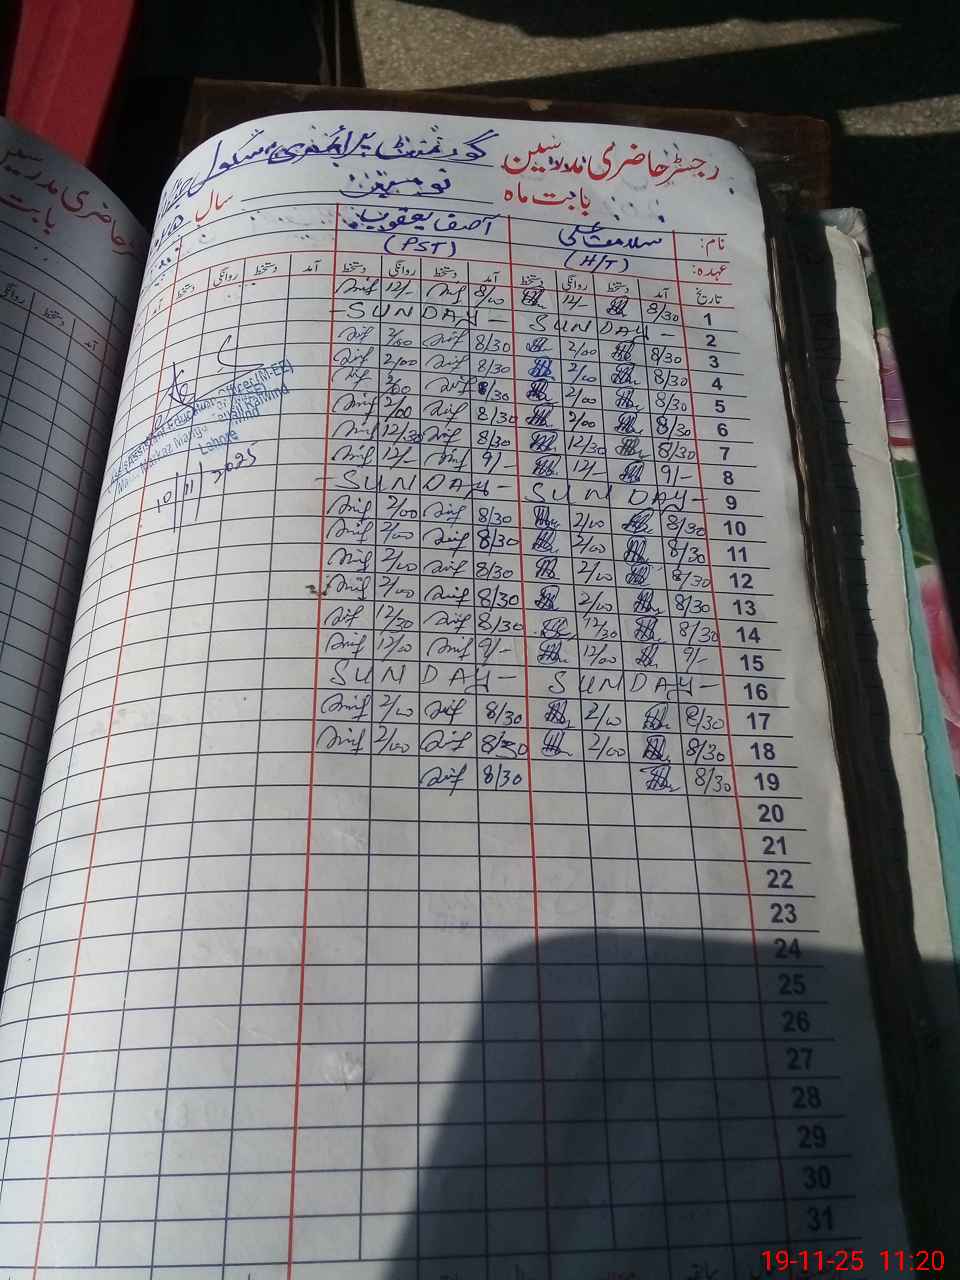 رجسٹر حاضری مدرسین گورنمنٹ پرائمری سکول
بابت ماہ نومبر سال
نام: سلامت علی آصف یعقوب
عہدہ: (H/T) (PST)
تاریخ آمد دستخط روانگی دستخط آمد دستخط روانگی دستخط آمد دستخط روانگی دستخط آمد
1 8/30 12/- 8/00 12/-
2 SUNDAY - SUNDAY -
3 8/30 2/00 8/30 2/00
4 8/30 2/00 8/30 2/00
5 8/30 2/00 8/30 2/00
6 8/30 2/00 8/30 2/00
7 8/30 12/30 8/30 12/30
8 9/- 12/- 9/- 12/-
9 SUNDAY - SUNDAY -
10 8/30 2/00 8/30 2/00
11 8/30 2/00 8/30 2/00
12 8/30 2/00 8/30 2/00
13 8/30 2/00 8/30 2/00
14 8/30 12/30 8/30 12/30
15 9/- 12/00 9/- 12/00
16 SUNDAY - SUNDAY -
17 8/30 2/00 8/30 2/00
18 8/30 2/00 8/30 2/00
19 8/30 8/30
20
21
22
23
24
25
26
27
28
29
30
31
Assistant Education Officer (M-EE)
Markaz Manga Tehsil Raiwind
Lahore
10/11/2025
حاضری مدرسین
بابت
روانگی دستخط آمد
19-11-25 11:20